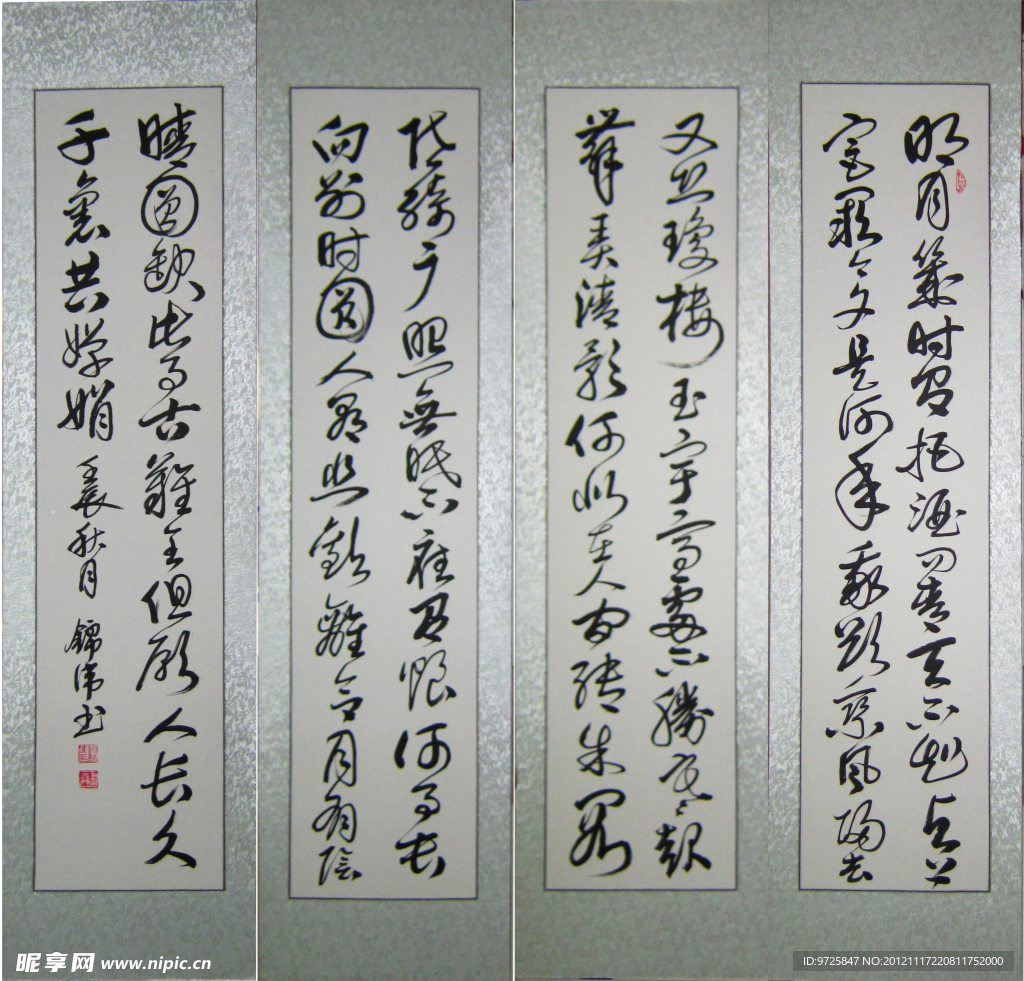 明月幾时有把酒问青天不知天上
宫阙今夕是何年我欲乘风归去
又恐瓊楼玉宇高處不勝寒起
舞弄清影何似在人间转朱阁
低绮户照無眠不应有恨何事长
向别时圆人有悲歡離合月有陰
晴圆缺此事古難全但願人长久
千裏共嬋娟 壬辰秋月 錦偉书
昵享网 www.nipic.cn
ID:9725847 NO:20121117220811752000